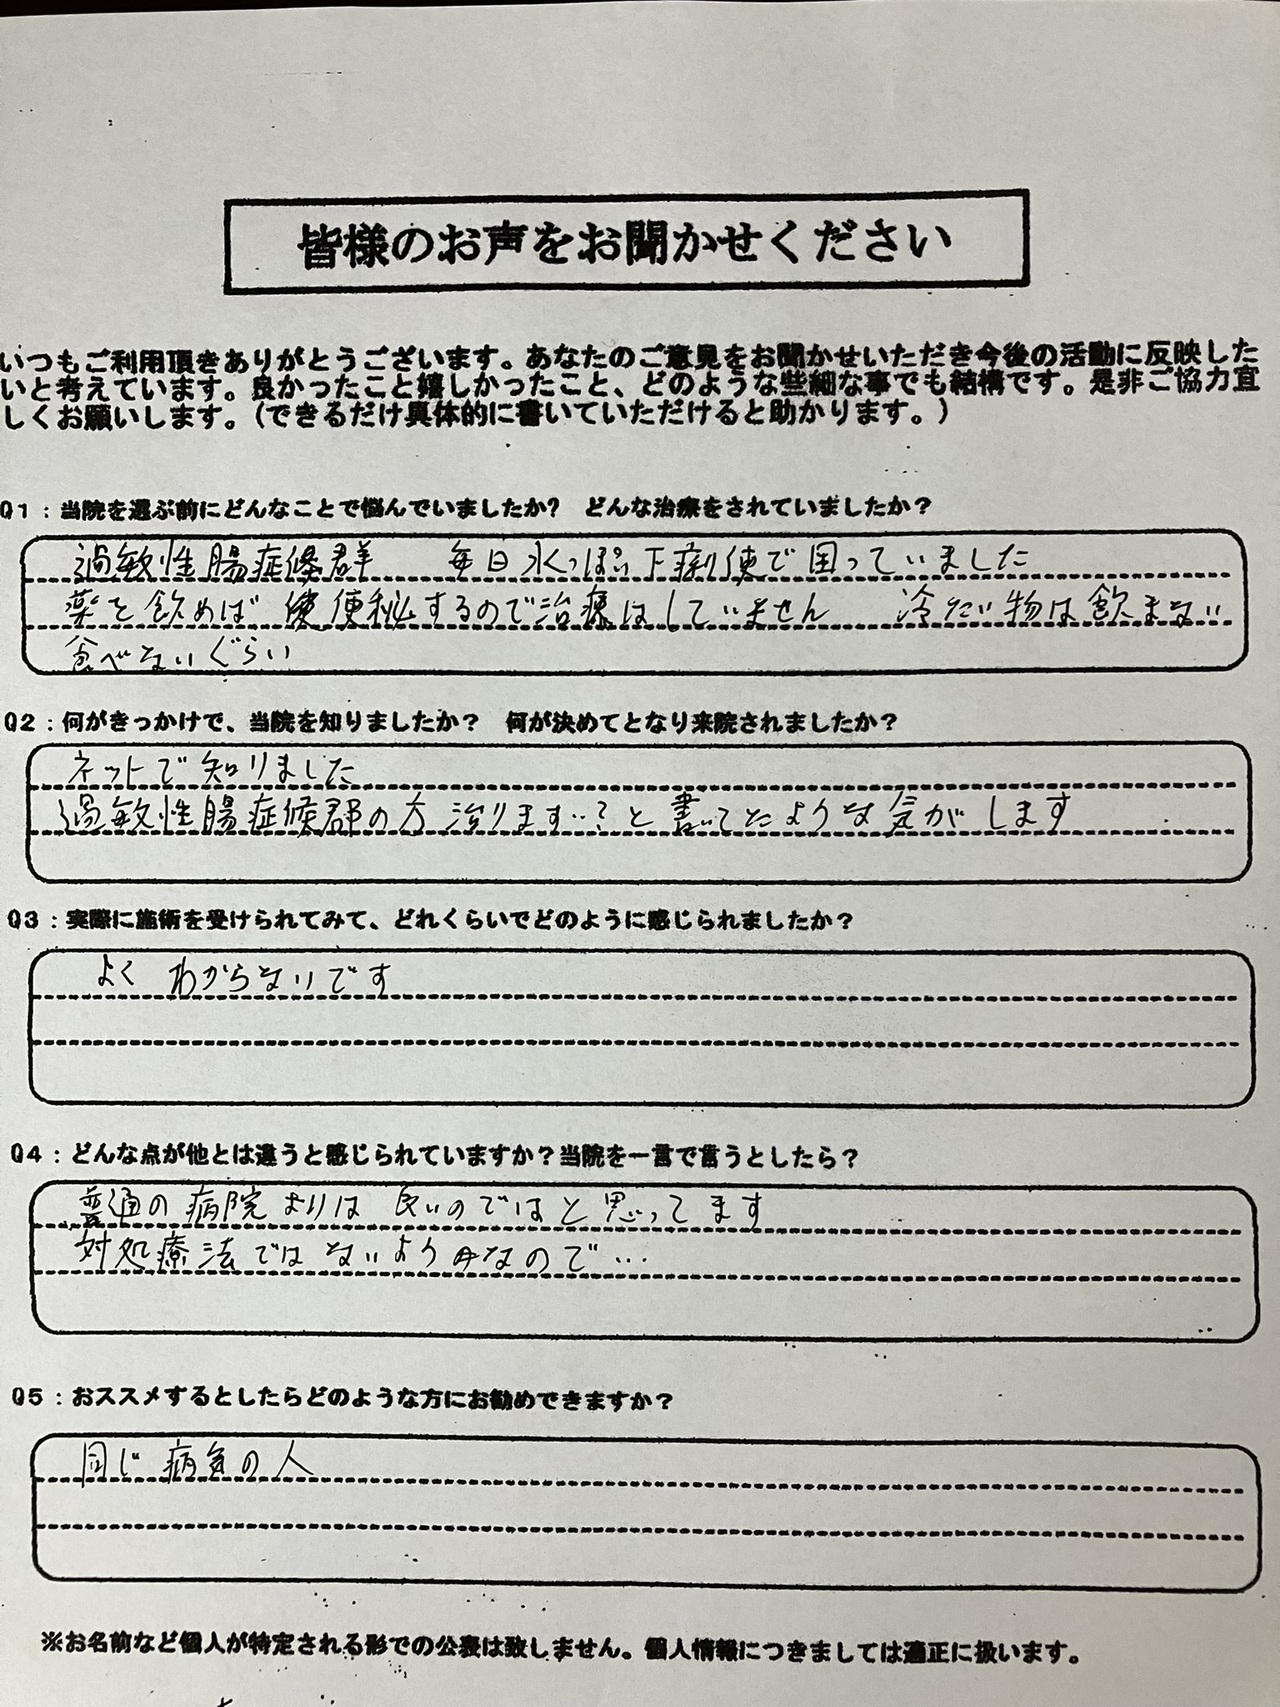 皆様のお声をお聞かせください
いつもご利用頂きありがとうございます。あなたのご意見をお聞かせいただき今後の活動に反映した
いと考えています。良かったこと嬉しかったこと、どのような些細な事でも結構です。是非ご協力宜
しくお願いします。（できるだけ具体的に書いていただけると助かります。）
Q1：当院を選ぶ前にどんなことで悩んでいましたか？ どんな治療をされていましたか？
過敏性腸症候群 毎日水っぽい下痢便で困っていました
薬を飲めば 便秘するので治療はしていません 冷たい物は飲まない
食べないぐらい
Q2：何がきっかけで、当院を知りましたか？ 何が決めてとなり来院されましたか？
ネットで知りました
過敏性腸症候郡の方治ります…？と書いてたような気がします
Q3：実際に施術を受けられてみて、どれくらいでどのように感じられましたか？
よく わからないです
Q4：どんな点が他とは違うと感じられていますか？当院を一言で言うとしたら？
普通の病院よりは 良いのではと思ってます
対処療法ではないようなので…
Q5：おススメするとしたらどのような方にお勧めできますか？
同じ病気の人
※お名前など個人が特定される形での公表は致しません。個人情報につきましては適正に扱います。